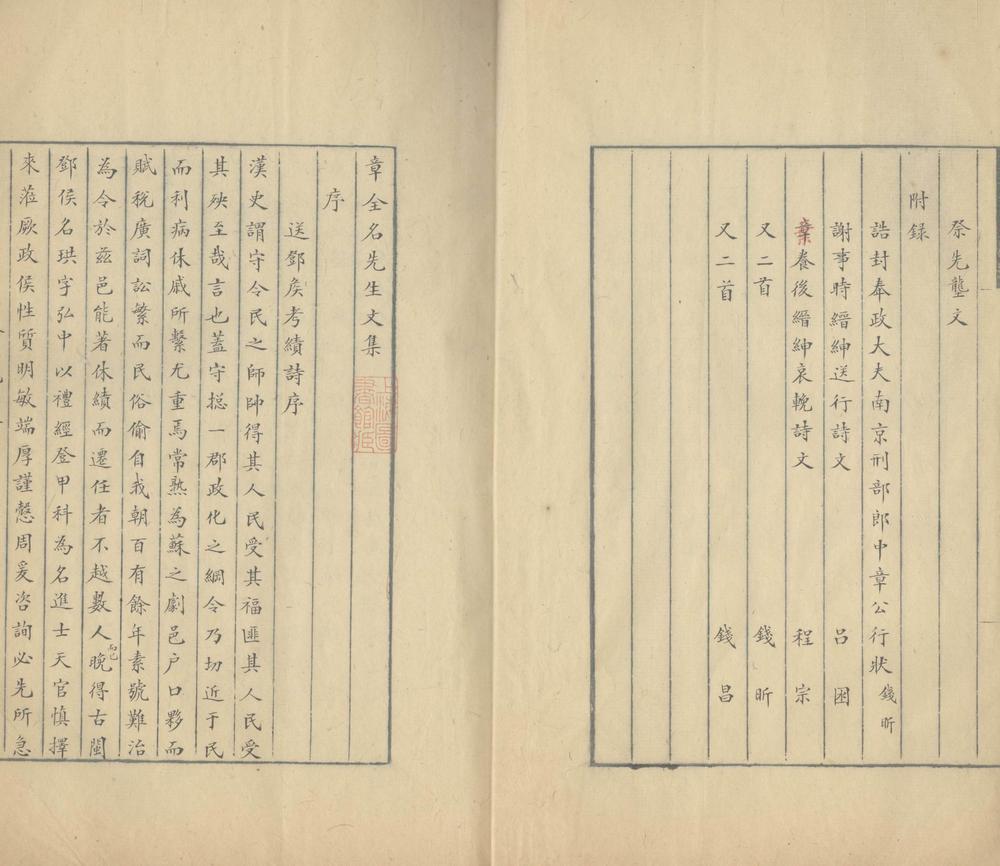 祭先壟文
附録
誥封奉政大夫南京刑部郎中章公行狀 錢昕
謝事時縉紳送行詩文 呂困
棄養後縉紳哀輓詩文 程宗
又二首 錢昕
又二首 錢昌
章全名先生文集
序
送鄧矦考績詩序
漢史謂守令民之師帥得其人民受其福匪其人民受
其殃至哉言也蓋守捴一郡政化之綱令乃切近于民
而利病休戚所繫尤重焉常熟為蘇之劇邑户口夥而
賦稅廣詞訟繁而民俗偷自我朝百有餘年素號難治
為令於兹邑能著休績而遷任者不越數人而已晚得古閩
鄧侯名珙字弘中以禮經登甲科為名進士天官慎擇
來蒞厥政侯性質明敏端厚謹慤周爰咨詢必先所急
上海圖書館藏